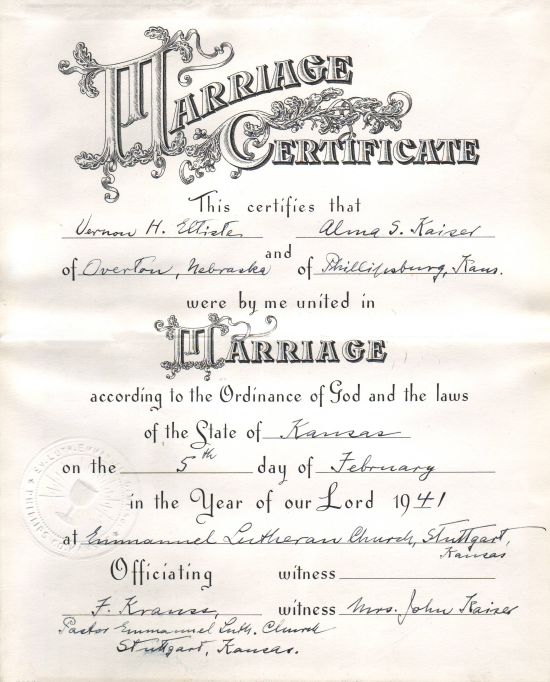 MARRIAGE
CERTIFICATE
This certifies that
Vernon H. Eltiste Alma S. Kaiser
and
of Overton, Nebraska of Phillipsburg, Kans.
were by me united in
MARRIAGE
according to the Ordinance of God and the laws
of the State of Kansas
on the 5th day of February
in the Year of our Lord 1941
at Emmanuel Lutheran Church, Stuttgart,
Kansas
Officiating witness
F. Krauss, witness Mrs. John Kaiser
Pastor Emmanuel Luth. Church
Stuttgart, Kansas.